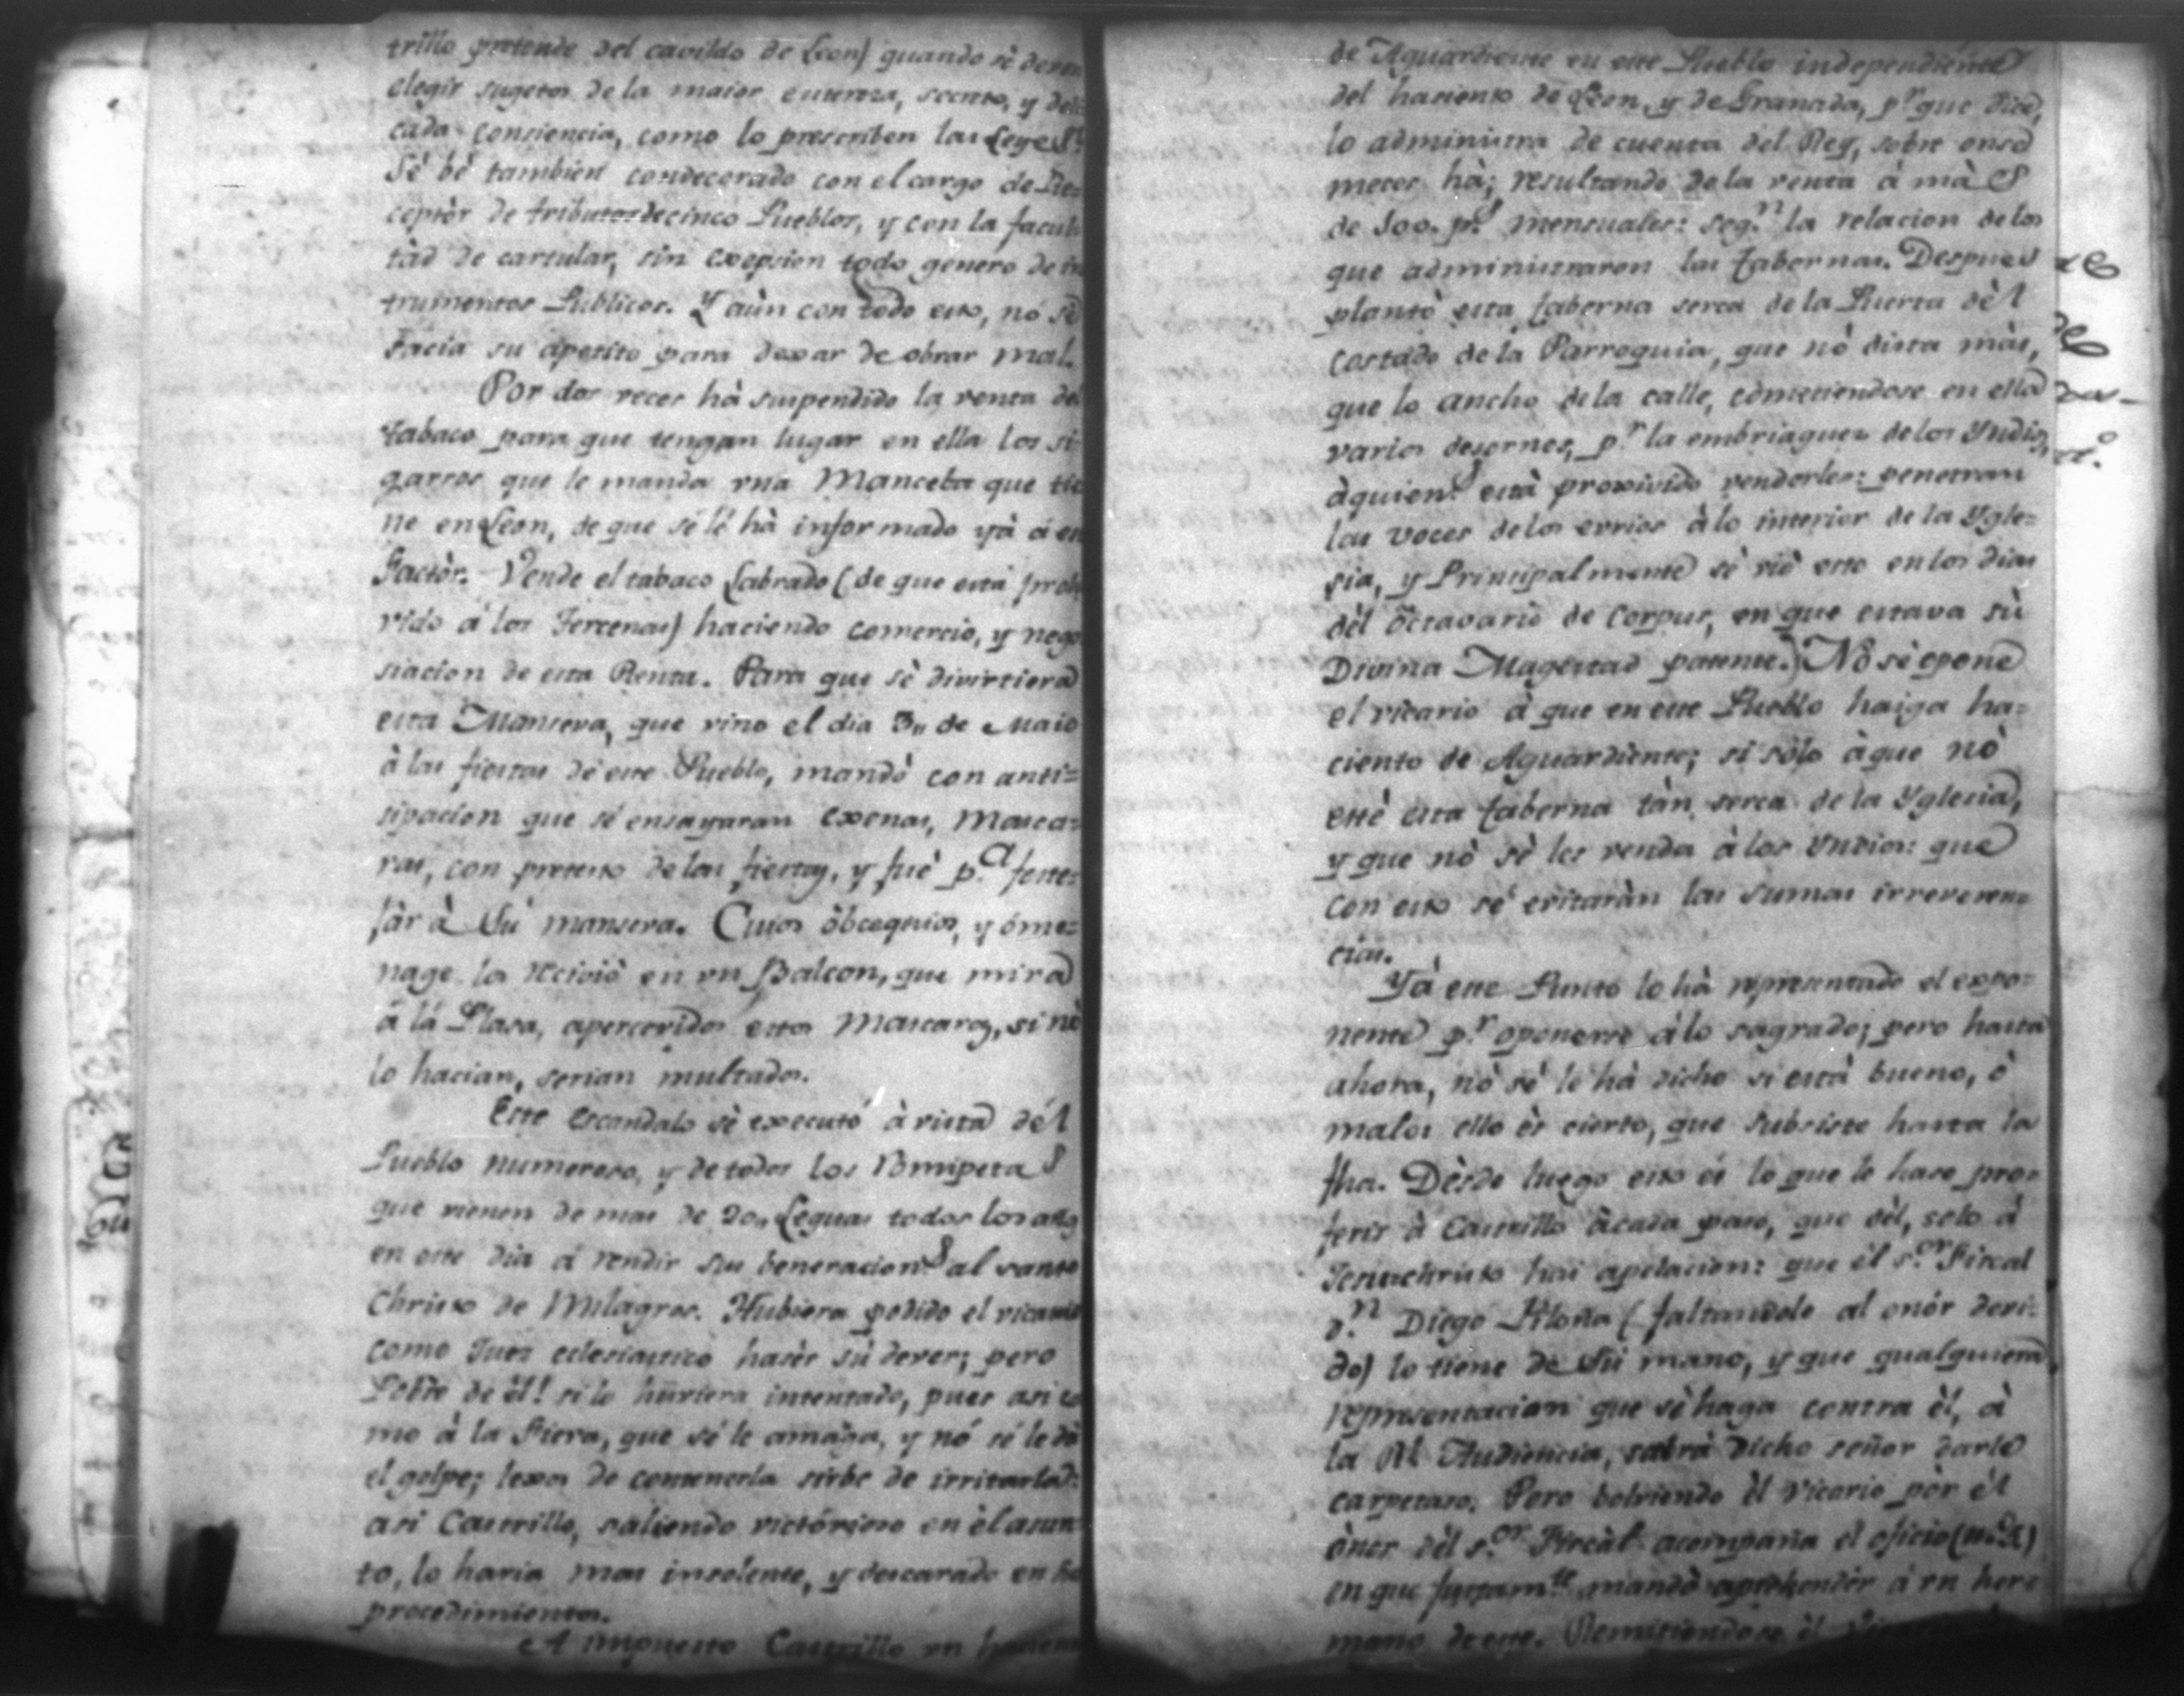 trillo pretende del cavildo de Leon) quando sè deven
elegir sugetos de la maior entereza, secreto, y deli
cada consiencia, como lo prescriben las Leyes.
Sè bè tambien condecorado con el cargo de Re=
ceptòr de tributos de cinco Pueblos, y con la facul
tàd de cartular, sin exepsion todo genero de ins
trumentos Publicos. Y aùn con todo esto, no sè
sacia su apetito para dexar de obrar mal.
Por dos veces hà suspendido la venta del
tabaco para que tengan lugar en ella los si
garros que le manda vna Manceba que tie
ne en Leon, de que sé lé hà informado yà à en
Factòr. Vende el tabaco Labrado (de que està prohi
vido á los Tercenas) haciendo comercio, y nego
siacion de esta Renta. Para que sè divirtiera
esta Manseva, que vino el dia 3,, de Maio
à las fiestas de este Pueblo, mandò con anti=
sipacion que sé ensayaran exenas, Masca=
ras, con pretexto de las fiestas, y fuè p.ª feste=
jàr à Sù manseva. Cuios òbcequios, y óme=
nage los recivió en vn Balcon, que mira
á lá Plasa, apercevidos estos Mascaras, si nò
lo hacian, serian multados.
Este escandalo sè executó à vista dèl
Pueblo numeroso, y de todos los Romipetas
que vienen de mas de 20,, Leguas todos los años
en este dia á rendir sus beneracion.s al santo
Christo de Milagros. Hubiera podido el vicario
como Juez eclesiastico hacèr sù dever; pero
Pobre de él! si lo huviera intentado, pues asi co
mo à la Fiera, que sé le amaga, y nó sé le dà
el golpe; lexos de contenerla sirbe de irritarla:
asi Castrillo, saliendo victórioso en èl asun
to, lo haria mas insolente, y descarado en sus
procedimientos.
A impuesto Castrillo vn haciento
de Aguardiente en este Pueblo independiente
del haciento de Leon, y de Granada, p.r que dice,
lo administra de cuenta del Rey, sobre onse
meses hà; resultando de la venta á màs
de 100. p.s mensuales: seg.n la relacion de los
que administraron las tabernas. Despues
plantò esta taberna serca de la Puerta dèl
costado de la Parroquia, que nò dista màs,
que lo ancho de la calle, cometiendose en ella
varios desornes, p.r la embriaguez de los Yndios,
àquien.s està proxivido venderles: penetran
las voces de los evrios à lo interior de la Ygle=
sia, y Principalmente sè viò esto en los dias
dèl òctavario de Corpus, en que estava sù
Divina Magestad patente. Nò sè opone
el vicario à que en este Pueblo haiga ha=
ciento de Aguardiente; si sòlo àque nò
estè esta taberna tàn serca de la Yglesia,
y que nò sè les venda à los Yndios: que
con esto sé evitaràn las sumas irreveren=
cias.
Yà este Punto lo hà representado el expo=
nente p.r oponerse à lo sagrado; pero hasta
ahora, nò sè le hà dicho si està bueno, ò
malo: ello ès cierto, que subsiste hasta la
fha. Dèsde luego esto és lo que le hase pro=
ferir à Castrillo àcada paso, que dèl, solo á
Jesuchristo hai apelacion: que èl s.or Fiscal
d.n Diego Piloña (faltandole al onór devi=
do) lo tiene de Sù mano, y que qualquiera
representacion que sè haga contra èl, à
la Rl Audiencia, sabrà dicho señor darle
carpetaso. Pero bolviendo èl vicario pòr èl
ònor dèl s.or Fiscàl acompaña el oficio
en que mandò aprehendèr á vn her=
mano de este. Remitiendose èl